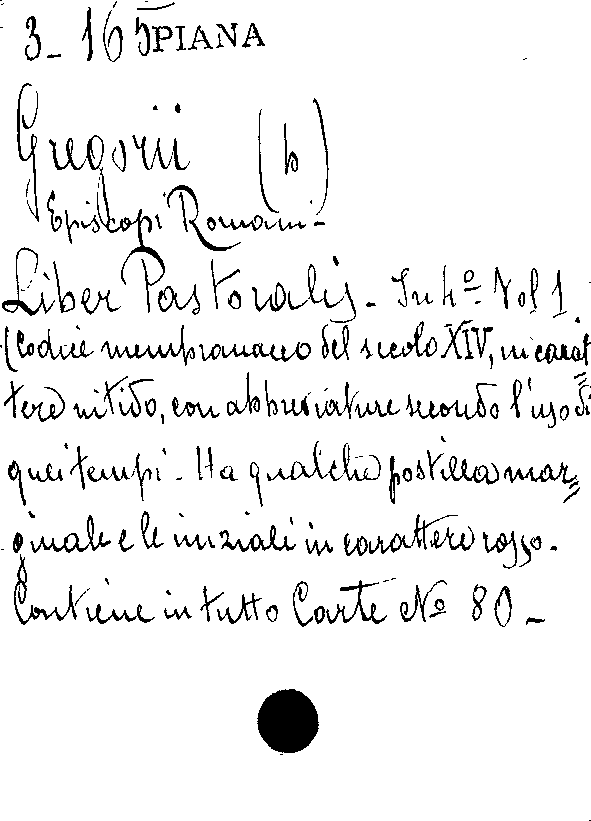 3_ 165 PIANA
Gregorii (b)
Episcopi Romani_
Liber Pastoralis_ In 4º Vol 1.
(Codice membranaceo del secolo XIV, in carat=
tere nitido, con abbreviature secondo l'uso di
quei tempi_ Ha qualche postilla mar=
ginale e le iniziali in carattere rosso_
Contiene in tutto Carte Nº 80_